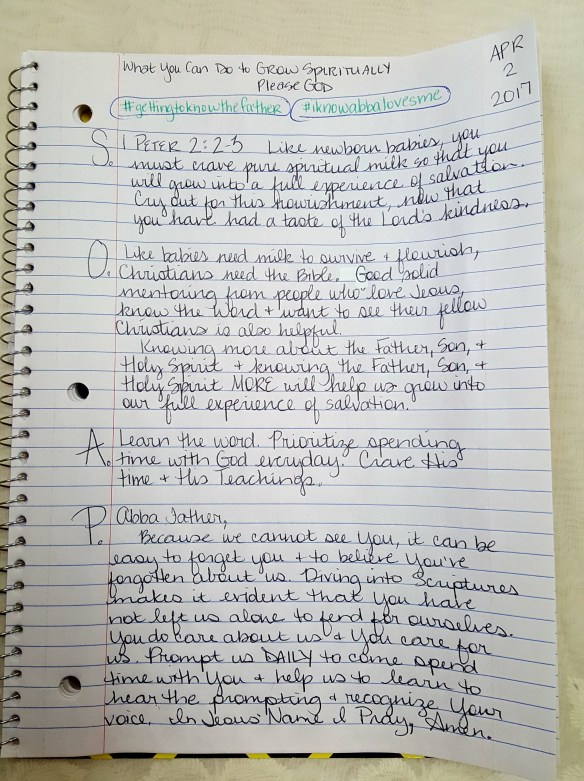 What You Can Do to GROW SPIRITUALLY
Please GOD
APR
2
2017
#gettingtoknowthefather #iknowabbalovesme
S. 1 PETER 2:2-3 Like newborn babies, you
must crave pure spiritual milk so that you
will grow into a full experience of salvation.
Cry out for this nourishment, now that
you have had a taste of the Lord's kindness.
O. Like babies need milk to survive + flourish,
Christians need the Bible. Good solid
mentoring from people who love Jesus,
know the Word + want to see their fellow
Christians is also helpful.
Knowing more about the Father, Son, +
Holy Spirit + knowing the Father, Son, +
Holy Spirit MORE will help us grow into
our full experience of salvation.
A. Learn the word. Prioritize spending
time with God everyday. Crave His
time + His Teachings.
P. Abba Father,
Because we cannot see You, it can be
easy to forget you + to believe You've
forgotten about us. Diving into Scriptures
makes it evident that You have
not left us alone to fend for ourselves.
You do care about us + You care for
us. Prompt us DAILY to come spend
time with You + help us to learn to
hear the prompting + recognize Your
voice. In Jesus' Name I Pray, Amen.